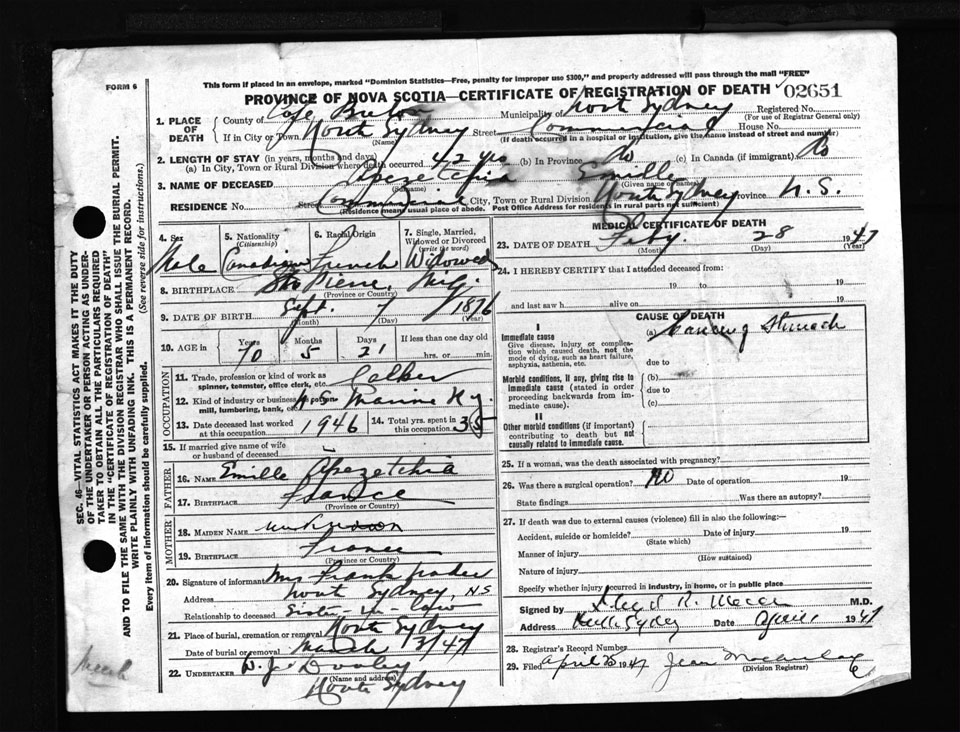 FORM 6
This form if placed in an envelope, marked "Dominion Statistics—Free, penalty for improper use $300," and properly addressed will pass through the mail "FREE"
PROVINCE OF NOVA SCOTIA—CERTIFICATE OF REGISTRATION OF DEATH 02651
1. PLACE OF DEATH County of Cape Breton Municipality of North Sydney Registered No.
(For use of Registrar General only)
If in City or Town North Sydney Street Commercial House No.
(Name) (If death occurred in a hospital or institution, give the name instead of street and number)
2. LENGTH OF STAY (in years, months and days)
(a) In City, Town or Rural Division where death occurred 42 yrs (b) In Province do (c) In Canada (if immigrant) do
3. NAME OF DECEASED Apezetchia Emille
(Surname) (Given name or names)
RESIDENCE No. Street Commercial City, Town or Rural Division North Sydney Province N.S.
(Residence means usual place of abode. Post Office Address for residents in rural parts not sufficient)
4. Sex Male
5. Nationality (Citizenship) Canadian
6. Racial Origin French
7. Single, Married, Widowed or Divorced (write the word) Widowed
8. BIRTHPLACE St. Pierre, Miq.
(Province or Country)
9. DATE OF BIRTH Sept. 7 1876
(Month) (Day) (Year)
10. AGE in Years 70 Months 5 Days 21 If less than one day old
hrs. or min.
OCCUPATION
11. Trade, profession or kind of work as spinner, teamster, office clerk, etc.
12. Kind of industry or business, mill, lumbering, bank, etc. Marine Ry.
13. Date deceased last worked at this occupation 1946 14. Total yrs. spent in this occupation 35
15. If married give name of wife or husband of deceased
FATHER
16. Name Emille Apezetchia
17. Birthplace France
MOTHER
18. Maiden Name unknown
19. Birthplace France
(Province or Country)
20. Signature of informant Mrs Frank
Address North Sydney, N.S
Relationship to deceased Sister-in-law
21. Place of burial, cremation or removal North Sydney
Date of burial or removal March 3/47
22. UNDERTAKER W. J. Dooley
(Name and address)
North Sydney
MEDICAL CERTIFICATE OF DEATH
23. DATE OF DEATH Feby. 28 1947
(Month) (Day) (Year)
24. I HEREBY CERTIFY that I attended deceased from:
19 to 19
and last saw h alive on 19
CAUSE OF DEATH
I
Immediate cause (a) Cancer of Stomach
Give disease, injury or complication which caused death, not the mode of dying, such as heart failure, asphyxia, asthenia, etc. due to
Morbid conditions, if any, giving rise to immediate cause (stated in order proceeding backwards from immediate cause). (b)
due to
(c)
II
Other morbid conditions (if important) contributing to death but not causally related to immediate cause.
25. If a woman, was the death associated with pregnancy?
26. Was there a surgical operation? no Date of operation 19
State findings Was there an autopsy?
27. If death was due to external causes (violence) fill in also the following:—
Accident, suicide or homicide? Date of injury 19
(State which)
Manner of injury
(How sustained)
Nature of injury
Specify whether injury occurred in industry, in home, or in public place
Signed by M.D.
Address Date April 1947
28. Registrar's Record Number
29. Filed April 25 1947 Jean
(Division Registrar)
SEC. 46—VITAL STATISTICS ACT MAKES IT THE DUTY
OF THE UNDERTAKER OR PERSON ACTING AS UNDERTAKER TO OBTAIN ALL THE PARTICULARS REQUIRED
IN THE "CERTIFICATE OF REGISTRATION OF DEATH"
AND TO FILE THE SAME WITH THE DIVISION REGISTRAR WHO SHALL ISSUE THE BURIAL PERMIT.
WRITE PLAINLY WITH UNFADING INK. THIS IS A PERMANENT RECORD.
Every item of information should be carefully supplied. (See reverse side for instructions.)